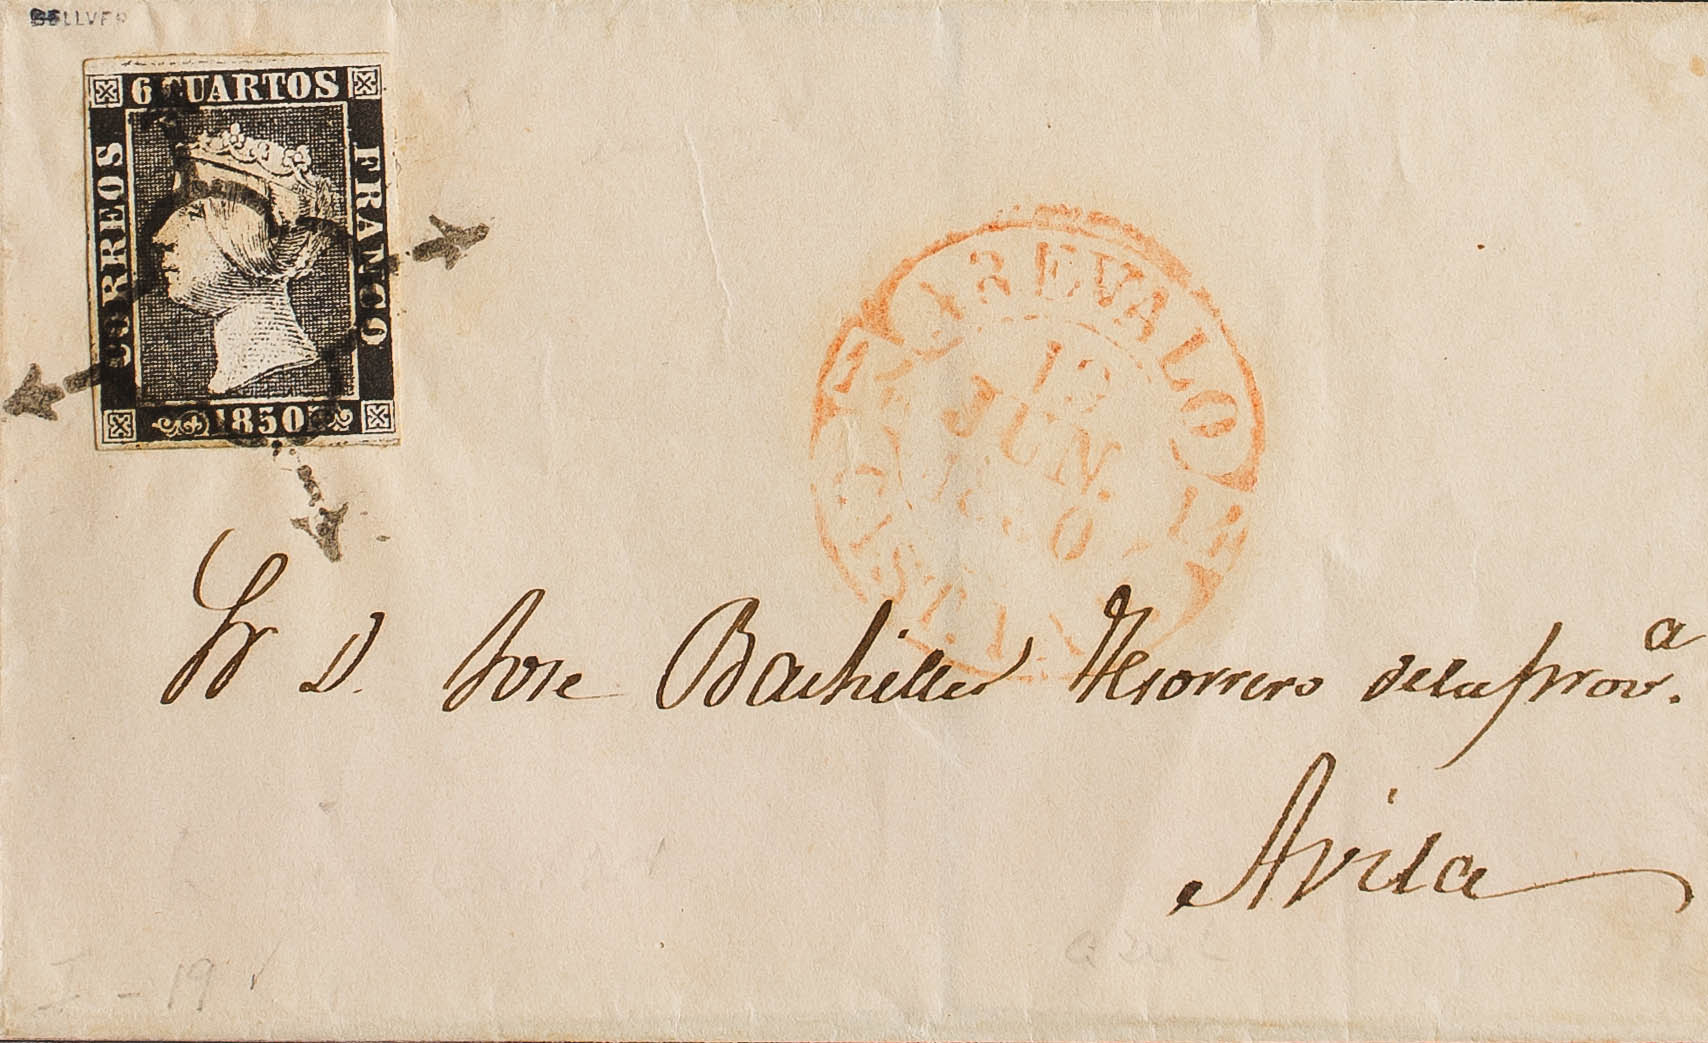 BELLVER
6 CUARTOS
CORREOS
FRANCO
1850
AREVALO
12
JUN.
1850
Sr D. Jose Bachiller Tesorrero dela prov.ª
Avila
I - 19